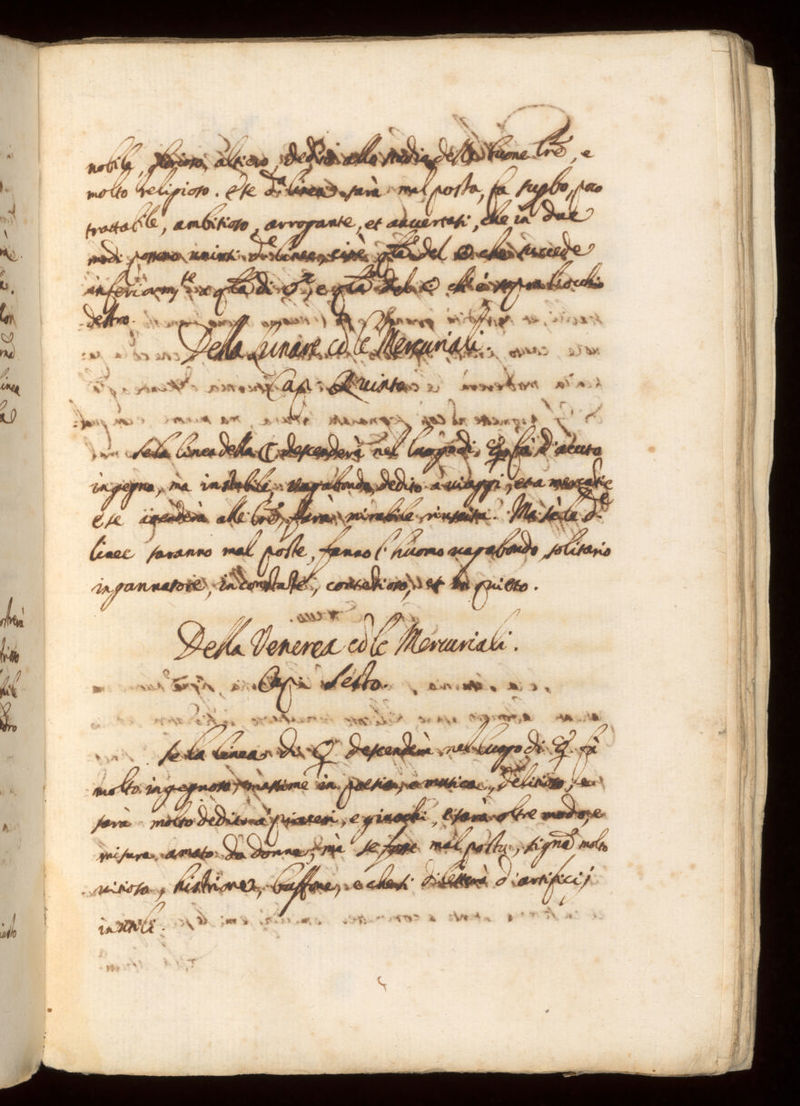 nobile, glorioso, altiero, dedito alla studia delle buone lr̃e, e
molto religioso. E se d.ª linea sarà mal posta, fa supbo, poco
trattabile, ambitioso, arrogante, et auuertati, che in due
modi possono unirsi d.e linee, cioè q̃lla del ☉ che succede
inferiorm.te a q̃lla di ♂, e q̃lla del ☉ ch'è sopra l'occhio
destro.
Della Lunare cõ le Mercuriali.
Cap. Quinto
Se la linea della ☾ descenderà nel luogo di ☿ fa d'acuto
ingegno, ma instabile, vagabondo, dedito a viaggi, et a mercatie
e se attenderà alle lr̃e, farà mirabile riuscita. Ma se le d.e
linee saranno mal poste, fanno l'huomo vagabondo, solitario
ingannatore, inconstate, contẽtioso, et in quieto.
Della Venerea cõ le Mercuriali.
Cap. Sesto
Se la linea di ♀ descenderà nel luogo di ☿ fà
molto ingegnoso, massime in poesia, e musica, delitioso, e
sarà molto dedito à piaceri, e giuochi, e sarà oltre modo, e
misura amato da donne, mà se fosse mal posta, signa molto
uitioso, histrione, buffone, e che si diletterà d'artificij
inutili.